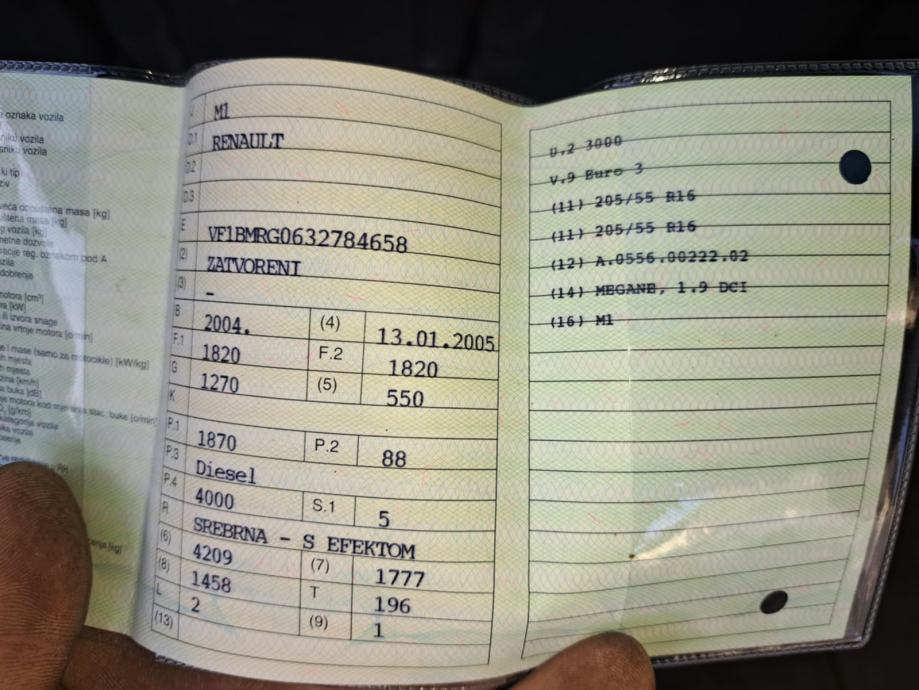 oznaka vozila
vozila
vozila
ki tip
ziv
masa [kg]
masa [kg]
vozila [kg]
reg. oznakom pod A
motora [cm³]
ili izvora snage
vrtnje motora
mase (samo za motocikle) [kW/kg]
mjesta
mjesta
[km/h]
buka [dB]
kod mjerenja stac. buke [o/min]
[g/km]
vozila
J M1
D.1 RENAULT
D.2
D.3
E VF1BMRG0632784658
(2) ZATVORENI
(3) –
B 2004. (4) 13.01.2005
F.1 1820 F.2 1820
G 1270 (5) 550
K
P.1 1870 P.2 88
P.3 Diesel
P.4 4000 S.1 5
R SREBRNA – S EFEKTOM
(6) 4209 (7) 1777
(8) 1458 T 196
L 2 (9) 1
(13)
U.2 3000
V.9 Euro 3
(11) 205/55 R16
(11) 205/55 R16
(12) A.0556.00222.02
(14) MEGANE, 1.9 DCI
(16) M1